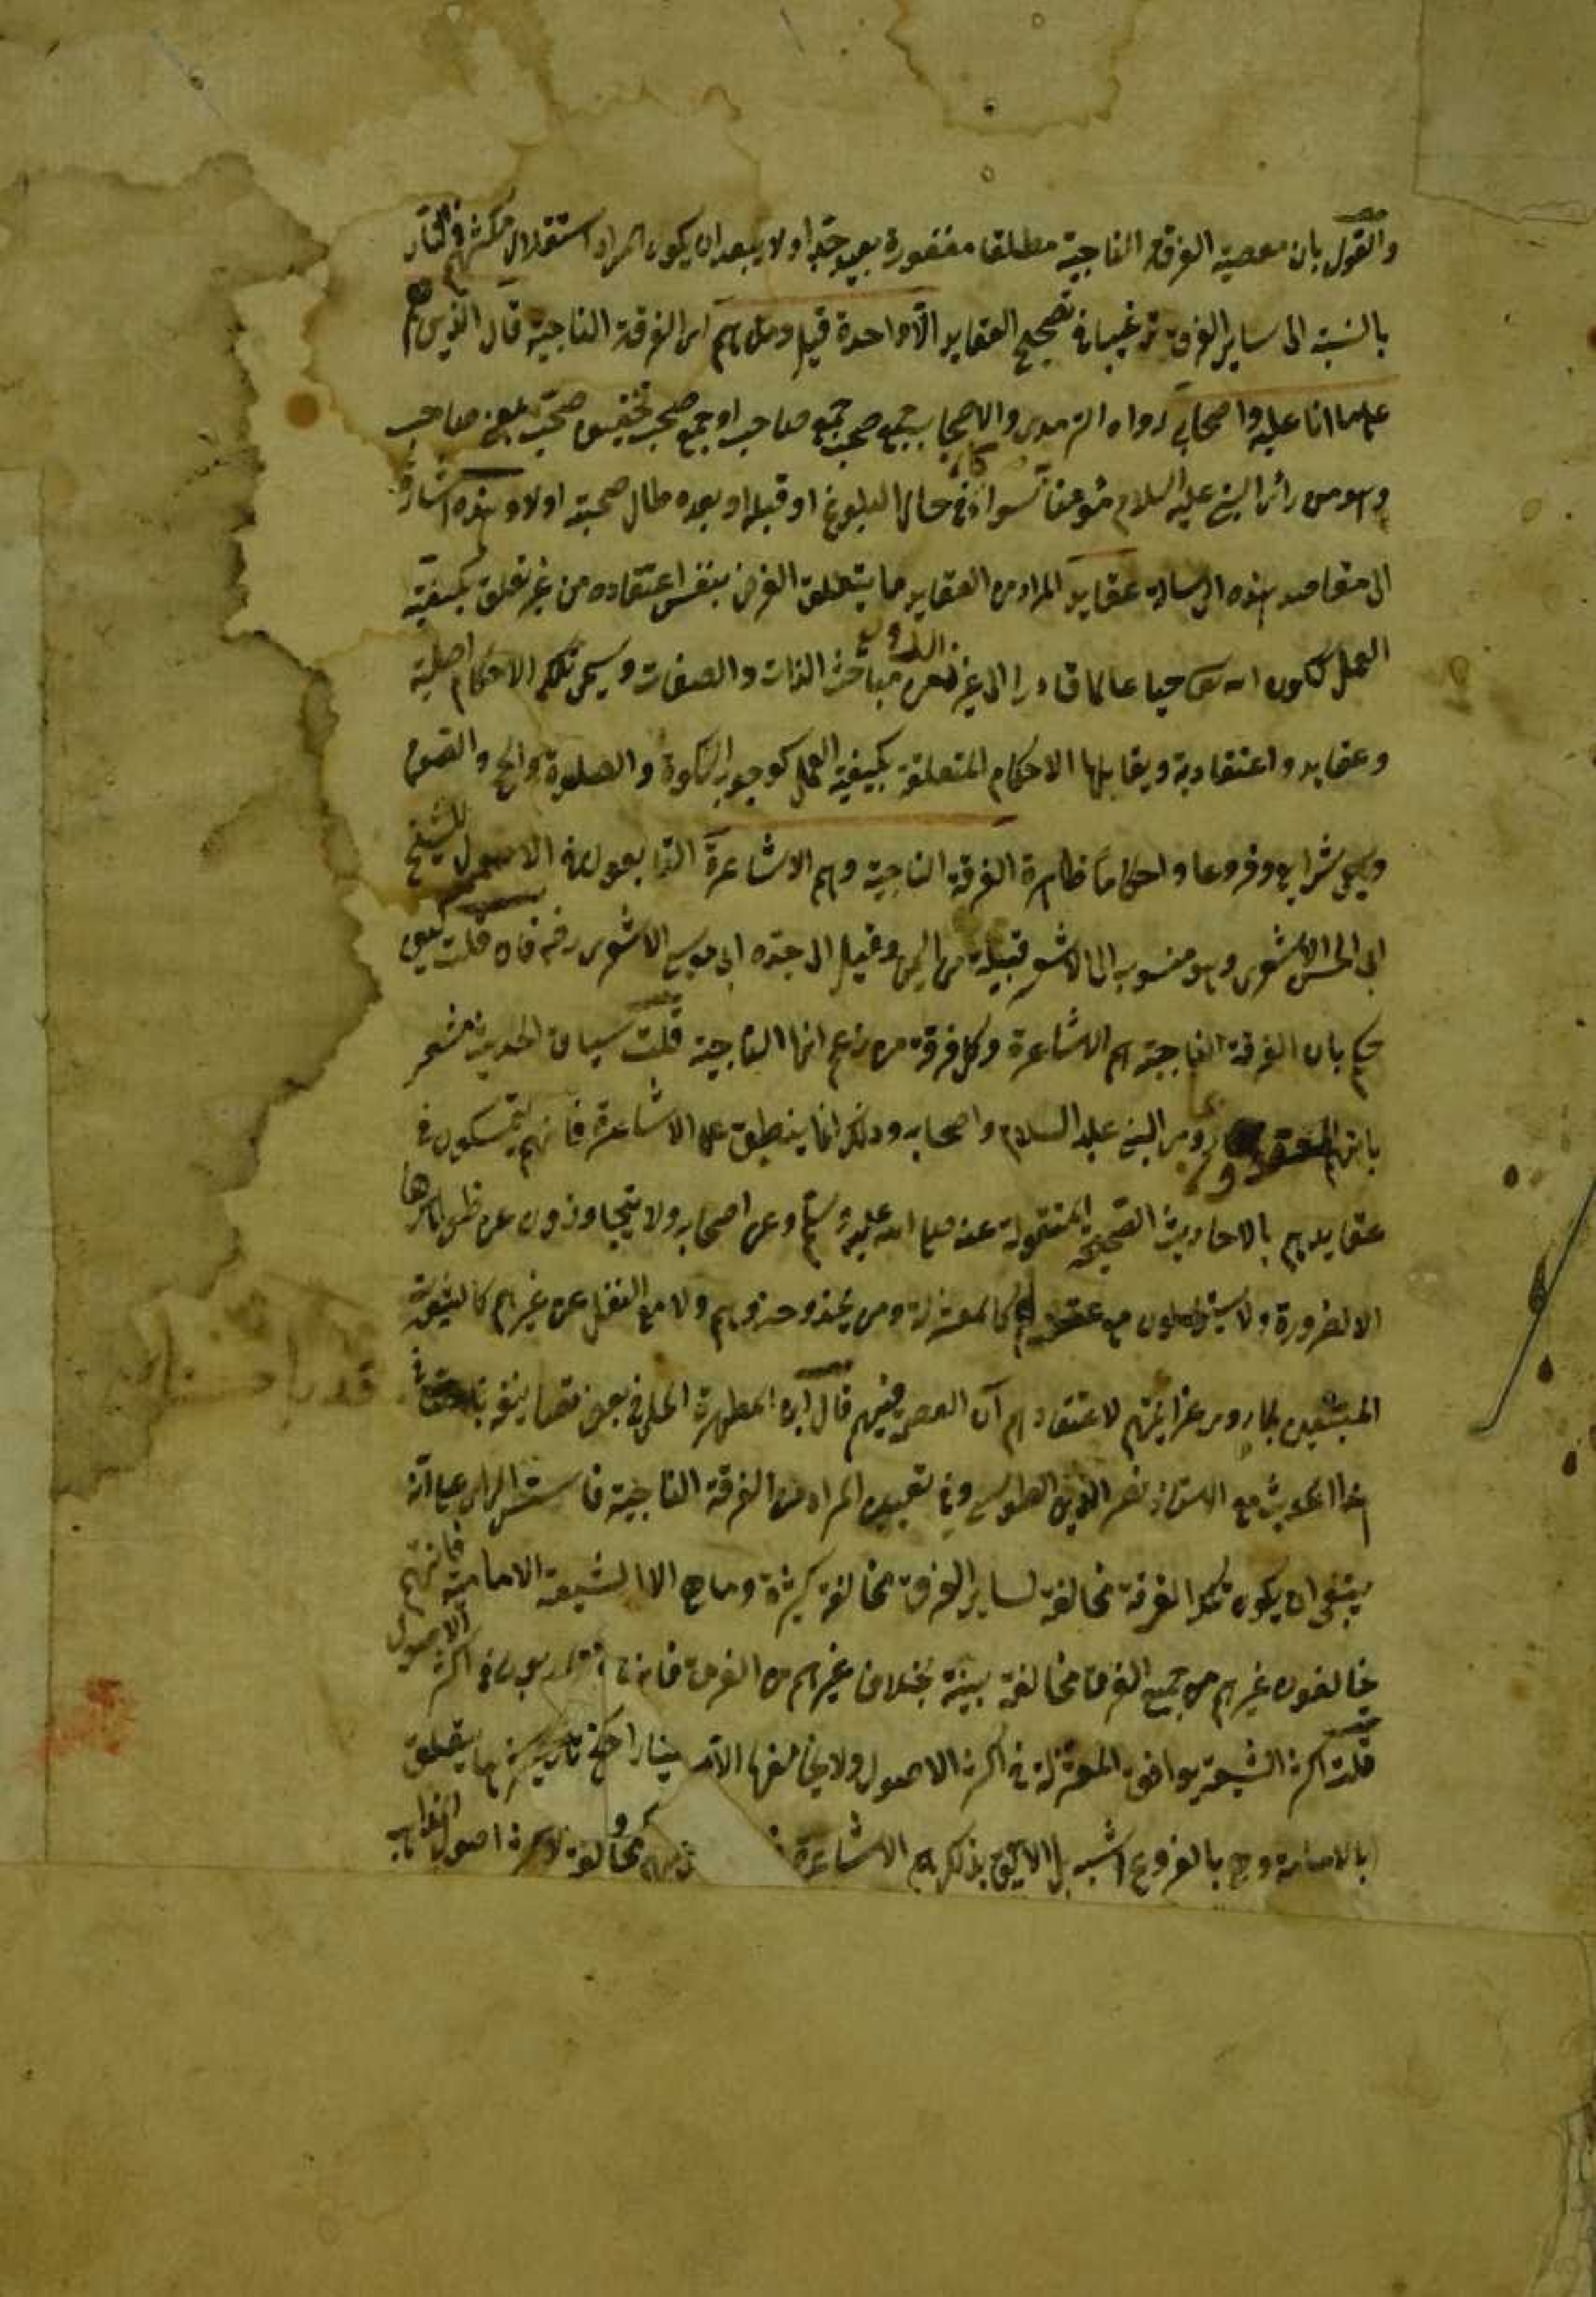 والقول بان معصية الفرقة الناجية مطلقا مغفورة بعيد جدا ولا يبعد ان يكون المراد استقلال مكثهم في النار
بالنسبة الى ساير الفرق ترغيبا في تصحيح العقايد الا واحدة قيل ومن هم اى الفرقة الناجية قال الذين هم
على ما انا عليه واصحابي رواه الترمدى والاصحاب جمع صحب جمع صاحب او جمع صحب تخفيف صحب بمعنى صاحب
وهو من رأى النبي عليه السلام مؤمنا سواء كان في حال البلوغ او قبله او بعده طال صحبته اولا وهذه اشارة
الى مقاصد هذه الرسالة عقايد المراد من العقايد ما يتعلق الغرض بنفس اعتقاده من غير تعلق بكيفية
العمل ككون الله تعالى حيا عالما قادرا الى غير ذلك من مباحث الذات والصفات ويسمى تلك الاحكام اصلية
وعقايد واعتقادية ويقابلها الاحكام المتعلقة بكيفية العمل كوجوب الزكوة والصلوة والحج والصوم
ويسمى شرايع وفروعا واحكاما ظاهرة الفرقة الناجية وهم الاشاعرة التابعون في الاصول للشيخ
ابى الحسن الاشعرى وهو منسوب الى الاشعر قبيلة من اليمن وقيل الى جده ابى موسى الاشعرى رضه فان قلت كيف
حكم بان الفرقة الناجية هم الاشاعرة وكل فرقة من تزعم انها الناجية قلت سياق الحديث مشعر
بانهم المعتقدون بما روى عن النبي عليه السلام واصحابه وذلك انما ينطبق على الاشاعرة فانهم يتمسكون في
عقايدهم بالاحاديث الصحيحة المنقولة عنه صلى الله عليه وسلم وعن اصحابه ولا يتجاوزون عن ظواهرها
الا لضرورة ولا يسترسلون مع عقولهم كالمعتزلة ومن يحذو حذوهم ولا مع النقل عن غيرهم كالشيعة
المتشبثين بما روى عن ائمتهم لاعتقادهم ان العصمة فيهم قال ابن المطهر الحلى في بعض تصانيفه باحثت في
هذا الحديث مع الاستاذ نصير الدين الطوسى وفي تعيين المراد من الفرقة الناجية فاستقر الراى على انه
ينبغي ان يكون تلك الفرقة مخالفة لساير الفرق مخالفة كثيرة وما هي الا الشيعة الامامية فانهم
يخالفون غيرهم من جميع الفرق مخالفة بينة بخلاف غيرهم من الفرق فانهم متقاربون في اكثر الاصول
قلت اكثر الشيعة يوافق المعتزلة في اكثر الاصول ولا يخالفها الا في مسائل اكثرها يتعلق
بالامامة وهي بالفروع اشبه بل الاليق بذلك هم الاشاعرة مخالفة لاكثر اصول المذاهب